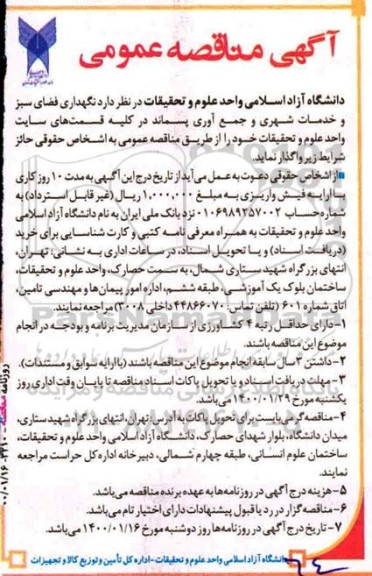 آگهی مناقصه عمومی
دانشگاه آزاد اسلامی واحد علوم و تحقیقات در نظر دارد نگهداری فضای سبز
و خدمات شهری و جمع آوری پسماند در کلیه قسمت‌های سایت
واحد علوم و تحقیقات خود را از طریق مناقصه عمومی به اشخاص حقوقی حائز
شرایط زیر واگذار نماید.
از اشخاص حقوقی دعوت به عمل می‌آید از تاریخ درج این آگهی به مدت ۱۰ روز کاری
با ارایه فیش واریزی به مبلغ ۱,۰۰۰,۰۰۰ ریال (غیر قابل استرداد) به
شماره حساب ۰۱۰۶۹۸۹۲۵۷۰۰۲ نزد بانک ملی ایران به نام دانشگاه آزاد اسلامی
واحد علوم و تحقیقات به همراه معرفی نامه کتبی و کارت شناسایی برای خرید
(دریافت اسناد) و یا تحویل اسناد، در ساعات اداری به نشانی: تهران،
انتهای بزرگراه شهید ستاری شمال، به سمت حصارک، واحد علوم و تحقیقات،
ساختمان بلوک یک آموزشی، طبقه ششم، اداره امور پیمان‌ها و مهندسی تامین،
اتاق شماره ۶۰۱ (تلفن تماس: ۴۴۸۶۶۰۷۰ داخلی ۳۰۰۸) مراجعه نمایند.
۱- دارای حداقل رتبه ۴ کشاورزی از سازمان مدیریت برنامه و بودجه در انجام
موضوع این مناقصه باشند.
۲- داشتن ۳ سال سابقه انجام موضوع این مناقصه باشند (با ارایه سوابق و مستندات).
۳- مهلت دریافت اسناد و یا تحویل پاکات اسناد مناقصه تا پایان وقت اداری روز
یکشنبه مورخ ۱۴۰۰/۰۱/۲۹ می‌باشد.
۴- مناقصه‌گران می‌بایست برای تحویل پاکات به آدرس: تهران، انتهای بزرگراه شهید ستاری،
میدان دانشگاه، بلوار شهدای حصارک، دانشگاه آزاد اسلامی واحد علوم و تحقیقات،
ساختمان علوم انسانی، طبقه چهارم شمالی، دبیرخانه اداره کل حراست مراجعه
نمایند.
۵- هزینه درج آگهی در روزنامه‌ها به عهده برنده مناقصه می‌باشد.
۶- مناقصه گزار در رد یا قبول پیشنهادات دارای اختیار تام می‌باشد.
۷- تاریخ درج آگهی در روزنامه‌ها روز دوشنبه مورخ ۱۴۰۰/۰۱/۱۶ می‌باشد.
دانشگاه آزاد اسلامی واحد علوم و تحقیقات - اداره کل تأمین و توزیع کالا و تجهیزات